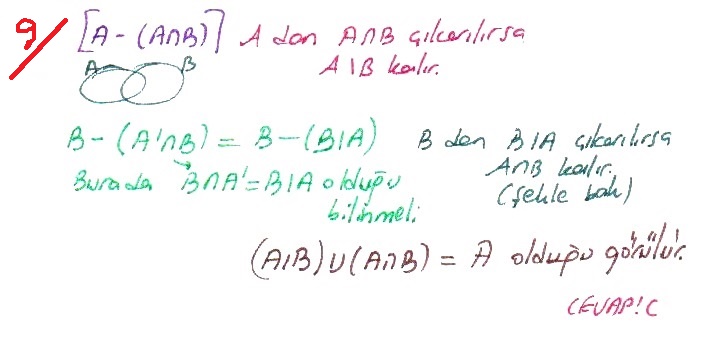 9/ [A - (A∩B)] A dan A∩B çıkarılırsa
A\B kalır.
A B
B - (A'∩B) = B - (B\A) B den B\A çıkarılırsa
A∩B kalır.
Burada B∩A' = B\A olduğu
(Şekle bak)
bilinmeli.
(A\B) ∪ (A∩B) = A olduğu görülür.
CEVAP: C